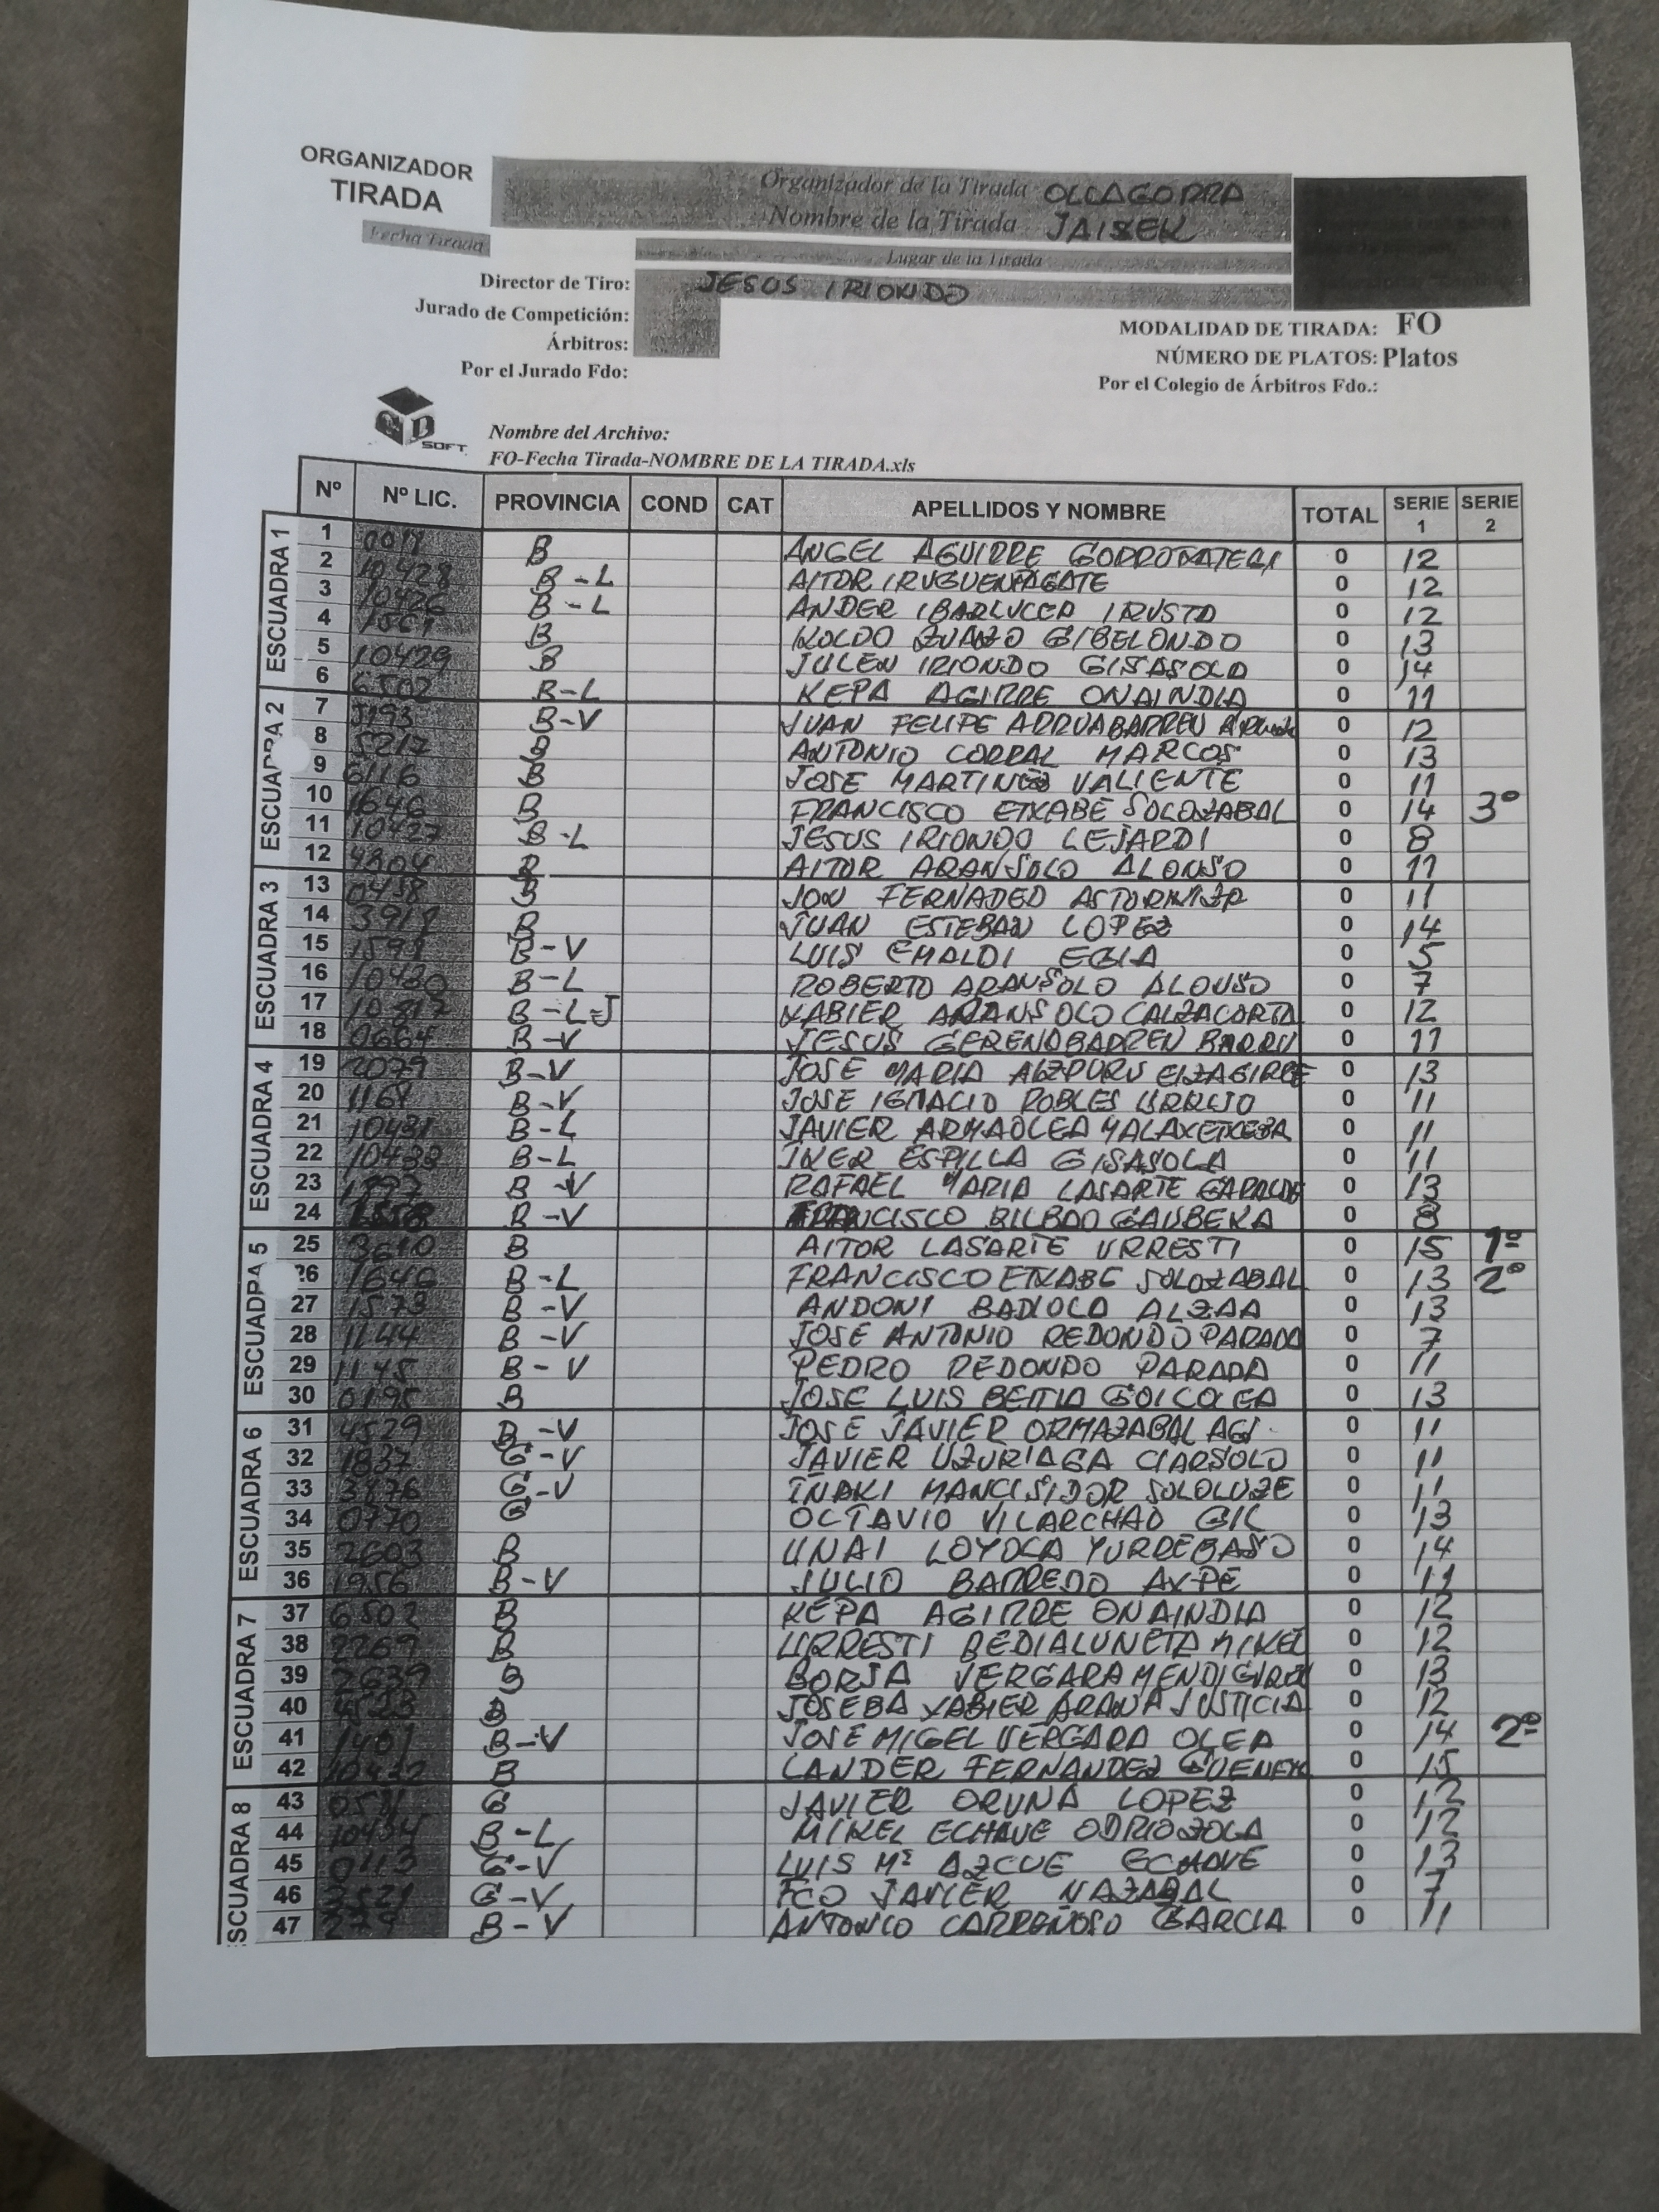 ORGANIZADOR
TIRADA
Organizador de la Tirada OLLAGORRA
Nombre de la Tirada JAIZEK
Fecha Tirada
Lugar de la Tirada
Director de Tiro: JESUS IRIONDO
Jurado de Competición:
Árbitros:
Por el Jurado Fdo:
MODALIDAD DE TIRADA: FO
NÚMERO DE PLATOS: Platos
Por el Colegio de Árbitros Fdo.:
SOFT
Nombre del Archivo:
FO-Fecha Tirada-NOMBRE DE LA TIRADA.xls
Nº Nº LIC. PROVINCIA COND CAT APELLIDOS Y NOMBRE TOTAL SERIE 1 SERIE 2
ESCUADRA 1
1 B ANGEL AGUIRRE 0 12
2 10428 B-L AITOR 0 12
3 10426 B-L ANDER IBARLUCEA IRUSTA 0 12
4 B KOLDO ZUAZO GIBELONDO 0 13
5 10429 B JULEN IRIONDO GISASOLA 0 14
6 6502 B-L KEPA AGIRRE ONAINDIA 0 11
ESCUADRA 2
7 B-V JUAN FELIPE ARRUABARREN 0 12
8 5217 B ANTONIO CORRAL MARCOS 0 13
9 6116 B JOSE MARTINEZ VALIENTE 0 11
10 1646 B FRANCISCO ETXABE SOLOZABAL 0 14 3º
11 10427 B-L JESUS IRIONDO LEJARDI 0 8
12 B AITOR ARANSOLO ALONSO 0 11
ESCUADRA 3
13 0458 B JON FERNADED 0 11
14 B JUAN ESTEBAN LOPEZ 0 14
15 B-V LUIS EMALDI EGIA 0 5
16 10430 B-L ROBERTO ARANSOLO ALONSO 0 7
17 10817 B-L-J XABIER ARANSOLO CALZACORTA 0 12
18 0664 B-V JESUS GERENABARREN BARRU 0 11
ESCUADRA 4
19 2079 B-V JOSE MARIA AIZPURU EIZAGIRRE 0 13
20 B-V JOSE IGNACIO ROBLES URRUJO 0 11
21 10431 B-L JAVIER ARMAOLEA MALAXETXEBA 0 11
22 10433 B-L IKER ESPILLA GISASOLA 0 11
23 B-V RAFAEL MARIA LASARTE 0 13
24 B-V FRANCISCO BILBAO GAUBEKA 0 8
ESCUADRA 5
25 3610 B AITOR LASARTE URRESTI 0 15 1º
26 1646 B-L FRANCISCO ETXABE SOLOZABAL 0 13 2º
27 1573 B-V ANDONI BADIOLA ALZAA 0 13
28 1144 B-V JOSE ANTONIO REDONDO PARADA 0 7
29 1145 B-V PEDRO REDONDO PARADA 0 11
30 0195 B JOSE LUIS BEITIA GOICOLEA 0 13
ESCUADRA 6
31 4529 B-V JOSE JAVIER ORMAZABAL AGI. 0 11
32 1837 G-V JAVIER UZURIAGA CIARSOLO 0 11
33 3876 G-V IÑAKI MANCISIDOR SOLOLUZE 0 11
34 0770 G OCTAVIO VILARCHAO GIL 0 13
35 2603 B UNAI LOYOLA YURREBASO 0 14
36 1956 B-V JULIO BARREDO AXPE 0 11
ESCUADRA 7
37 6502 B KEPA AGIRRE ONAINDIA 0 12
38 2269 B URRESTI BEDIALUNETA MIKEL 0 12
39 2639 B BORJA VERGARA 0 13
40 4523 B JOSEBA XABIER ARANA JUSTICIA 0 12
41 1401 B-V JOSE MIGEL VERGARA OLEA 0 14 2º
42 10432 B LANDER FERNANDEZ 0 15
ESCUADRA 8
43 G JAVIER ORUNA LOPEZ 0 12
44 10434 B-L MIKEL ECHAVE ODRIOZOLA 0 12
45 0113 G-V LUIS Mª AZCUE ECHAVE 0 13
46 2521 G-V FCO JAVIER NAZABAL 0 7
47 279 B-V ANTONIO CARREÑOSO GARCIA 0 11